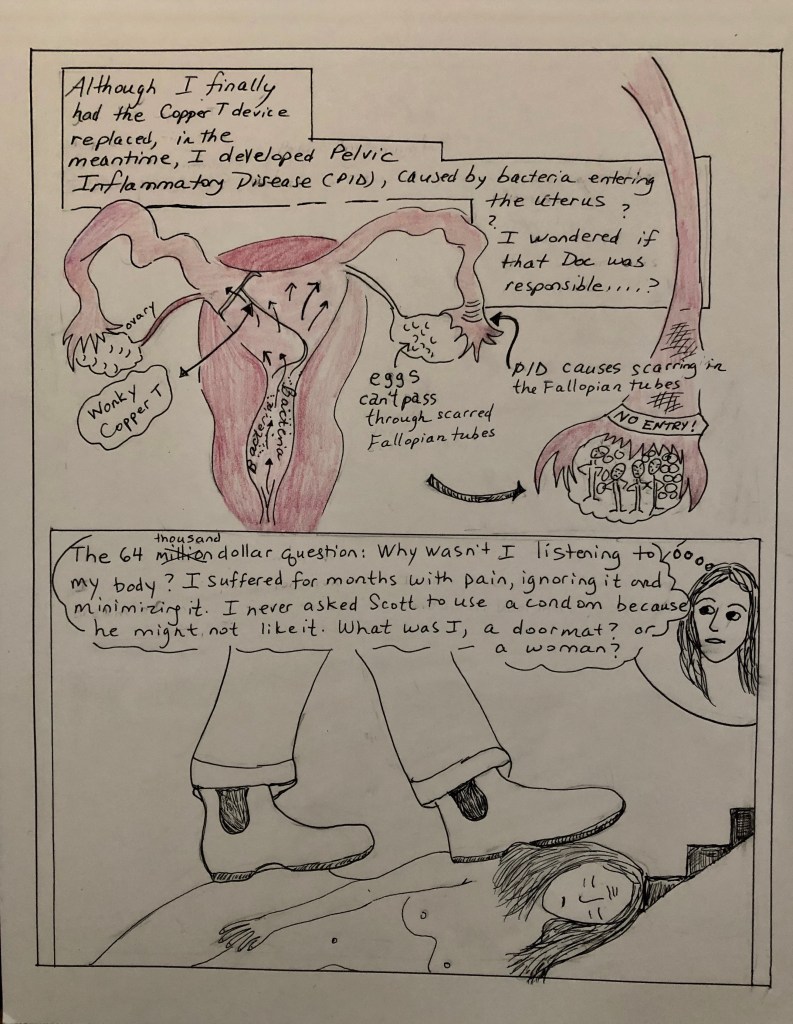 Although I finally
had the Copper T device
replaced, in the
meantime, I developed Pelvic
Inflammatory Disease (PID), caused by bacteria entering
the uterus ?
?
I wondered if
that Doc was
responsible,....?
ovary
Wonky
Copper T
Bacteria
Bacteria
eggs
can't pass
through scarred
Fallopian tubes
PID causes scarring in
the Fallopian tubes
NO ENTRY!
thousand
The 64 million dollar question: Why wasn't I listening to
my body? I suffered for months with pain, ignoring it and
minimizing it. I never asked Scott to use a condom because
he might not like it. What was I, a doormat? or
a woman?